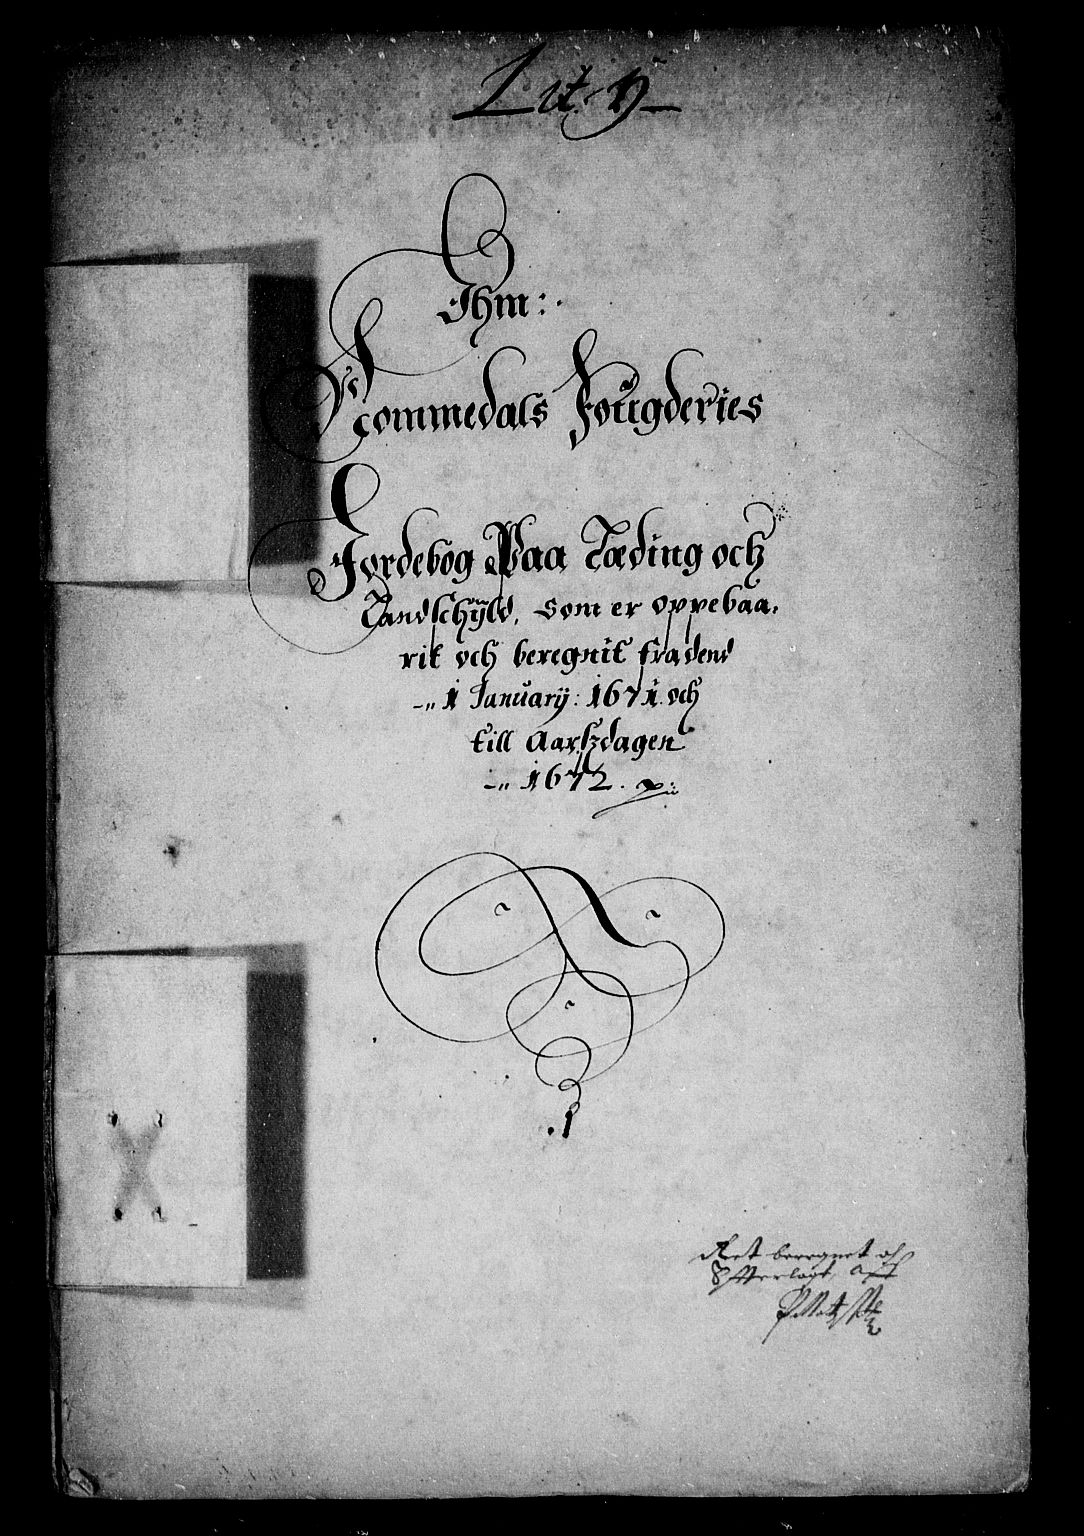 Lit. N
Ihm:
Rommedals Fougderies
Jordebog Paa Læding och
Landschÿld, som er oppebaa,
rit och beregnit fra dend
1 Januarÿ: 1671. och
till Aarszdagen
1672.
1
Ret beregnet oc
Efterlagt